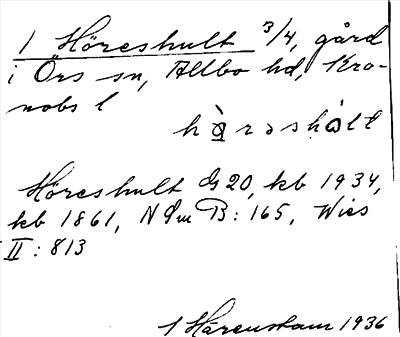 1 Höreshult 3/4, gård
i Örs sn, Allbo hd, Kro-
nobs l
Höreshult G 20, kb 1934,
kb 1861, NGm B: 165, Wies
II: 813
1936